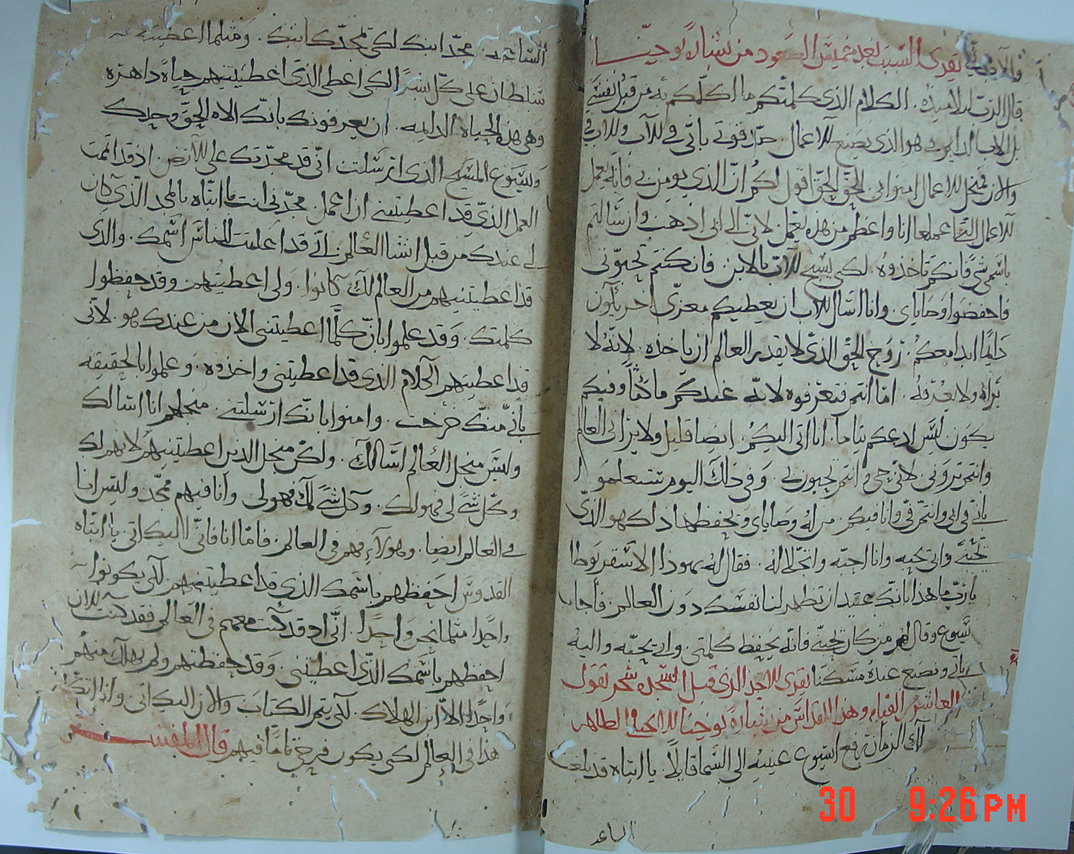 والآب يقرى السبت بعد خميس الصعود من بشارة يوحنا
قال الرب لتلاميذه. الكلام الذي كلمتكم ما اكلمكم به من قبل نفسي
بل الاب الذي هو الذي يصنع للاعمال. صدقوني باني في للاب وللاب في
والا من اجل للاعمال امنوا بي. الحق الحق اقول لكم ان الذي يومن بي فانه يعمل
للاعمال التي اعملها انا واعظم من هذه يعمل. لاني الى ابي اذهب وان سالتم
باسمي شي فانكم تاخذوه. لكي يتمجد للاب بالابن فان كنتم تحبوني
فاحفظوا وصاياي وانا اسال للاب ان يعطيكم معزي اخر يكون
دايما ابدا معكم. روح الحق الذي لا يقدر العالم ان ياخذه. لانه لا
يراه ولا يعرفه. اما انتم فتعرفوه لانه عندكم ماكثا وفيكم
يكون ليس ادعكم يتاما. انا اتي اليكم. ايضا قليل ولا يراني العالم
وانتم تروني لاني حي وانتم تحيون. وفي ذلك اليوم ستعلموا
باني في ابي وانتم في وانا فيكم. من له وصاياي ويحفظها ذلك هو الذي
يحبني وابي يحبه وانا احبه واتجلا له. فقال له يهوذا الاسقريوطا
يارب ما هذا بانك عتيد ان تظهر لنا نفسك دون العالم. فاجاب
يسوع وقال لهم من كان يحبني فانه يحفظ كلمتي وابي يحبه واليه
ياتي ونصنع عنده مسكنا يقرى للاحد الذي قبل السجده سحر تقول
العاشر القيام وهذا القداس من بشارة يوحنا للانجيل الطاهر
في الزمان رفع ايسوع عينيه الى السما قايلا. يا ابتاه قد بلغت
الساعه. مجد ابنك لكي يمجدك ابنك. ومثلما اعطيته
سلطان على كل بشر الكي اعطي الذي اعطيتنيهم حياه داهره
وهي هذه الحياه الدايمه. ان يعرفونك بانك الاه الحق وحدك
وايسوع المسيح الذي ارسلت اني قد مجدتك على للارض. اذ قد اتممت
العمل الذي قد اعطيتني ان اعمل مجدني انت يا ابتاه بالمجد الذي كان
لي عندك من قبل انشا العالم. اني قد اعلمت الناس اسمك. والذي
قد اعطيتنيهم من العالم لك كانوا. ولي اعطيتهم. وقد حفظوا
كلمتك. وقد علموا بان كلما اعطيتني الان من عندك هو. لاني
قد اعطيتهم الكلام الذي قد اعطيتني واخذوه. وعلموا بالحقيقه
باني منك خرجت. وامنوا بانك ارسلتني من اجلهم انا اسالك
وليس من اجل العالم اسالك. ولكن من اجل الذين اعطيتنيهم لانهم لك
وكل شي لي فهو لك. وكل شي لك فهو لي وانا فيهم ممجد وليس انا
في العالم ايضا. وهولاء هم في العالم. فاما انا فاتي اليك اتي يا ابتاه
القدوس احفظهم باسمك الذي قد اعطيتنيهم لكي يكونوا
واحدا مثلما نحن واحدا. اني اذ قد كنت معهم في العالم فقد كنت للان
احفظهم باسمك الذي اعطيتني. وقد حفظتهم ولم يهلك منهم
واحدا الا ابن الهلاك. لكي يتم الكتاب والان اليك اتي وانا اتكلم
هذا في العالم لكي يكون فرحي تاما فيهم قال المفسر
العا
30 9:26PM